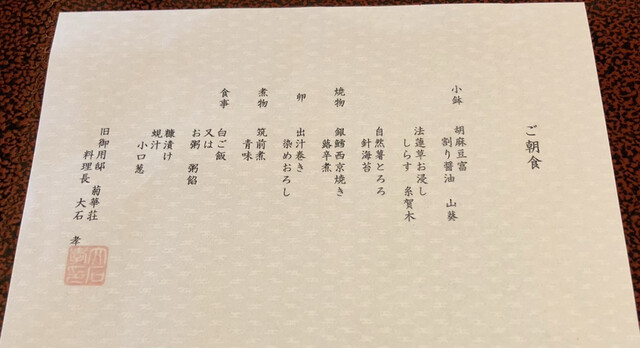 ご朝食
小鉢 胡麻豆富
割り醤油 山葵
法蓮草お浸し
しらす 糸賀木
自然薯とろろ
針海苔
焼物 銀鱈西京焼き
蕗辛煮
卵 出汁巻き
染めおろし
煮物 筑前煮
青味
食事 白ご飯
又は
お粥 粥餡
糠漬け
蜆汁
小口葱
旧御用邸 菊華荘
料理長 大石 孝